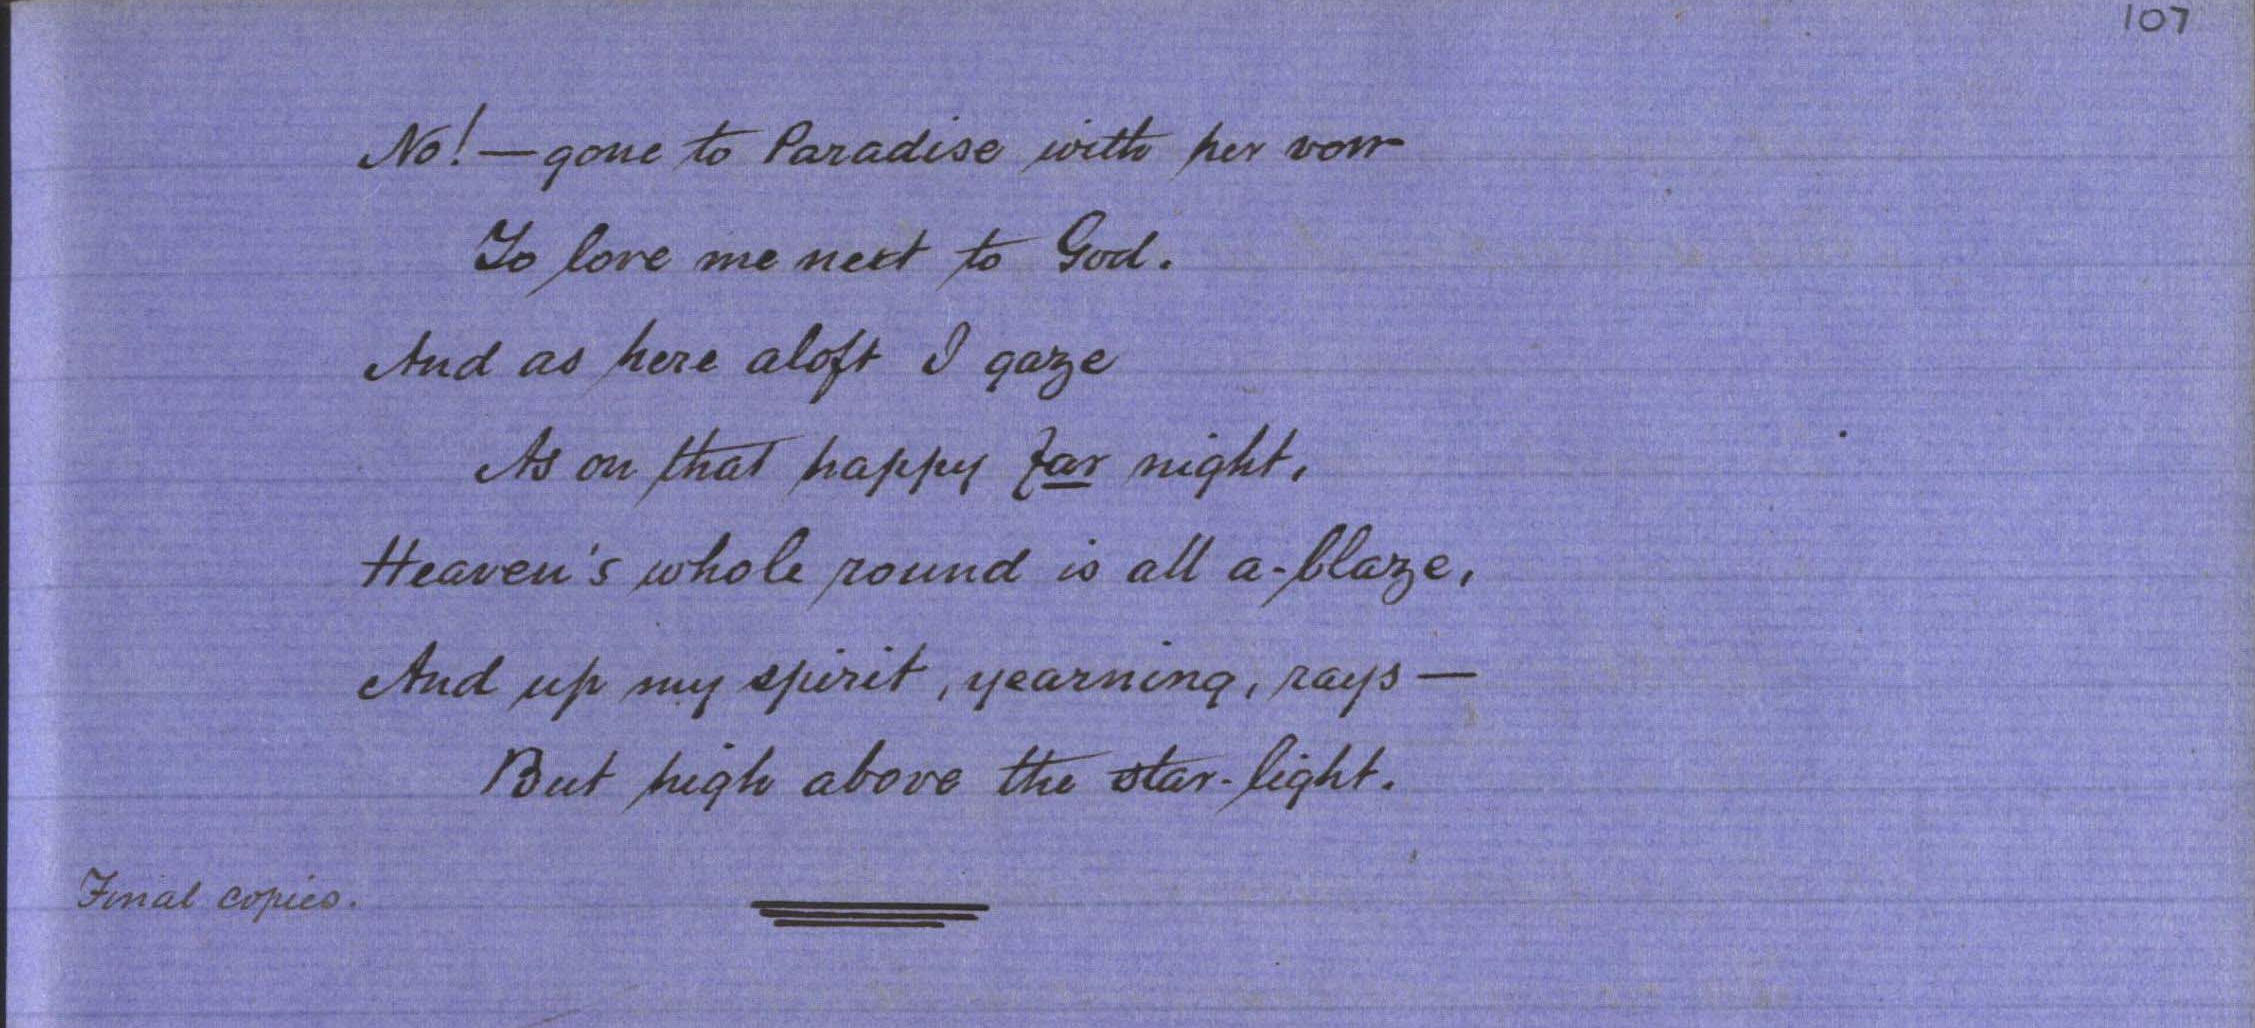 107
No! — gone to Paradise with her vow
To love me next to God.
And as here aloft I gaze
As on that happy far night,
Heaven's whole round is all a-blaze,
And up my spirit, yearning, rays —
But high above the star-light.
Final copies.